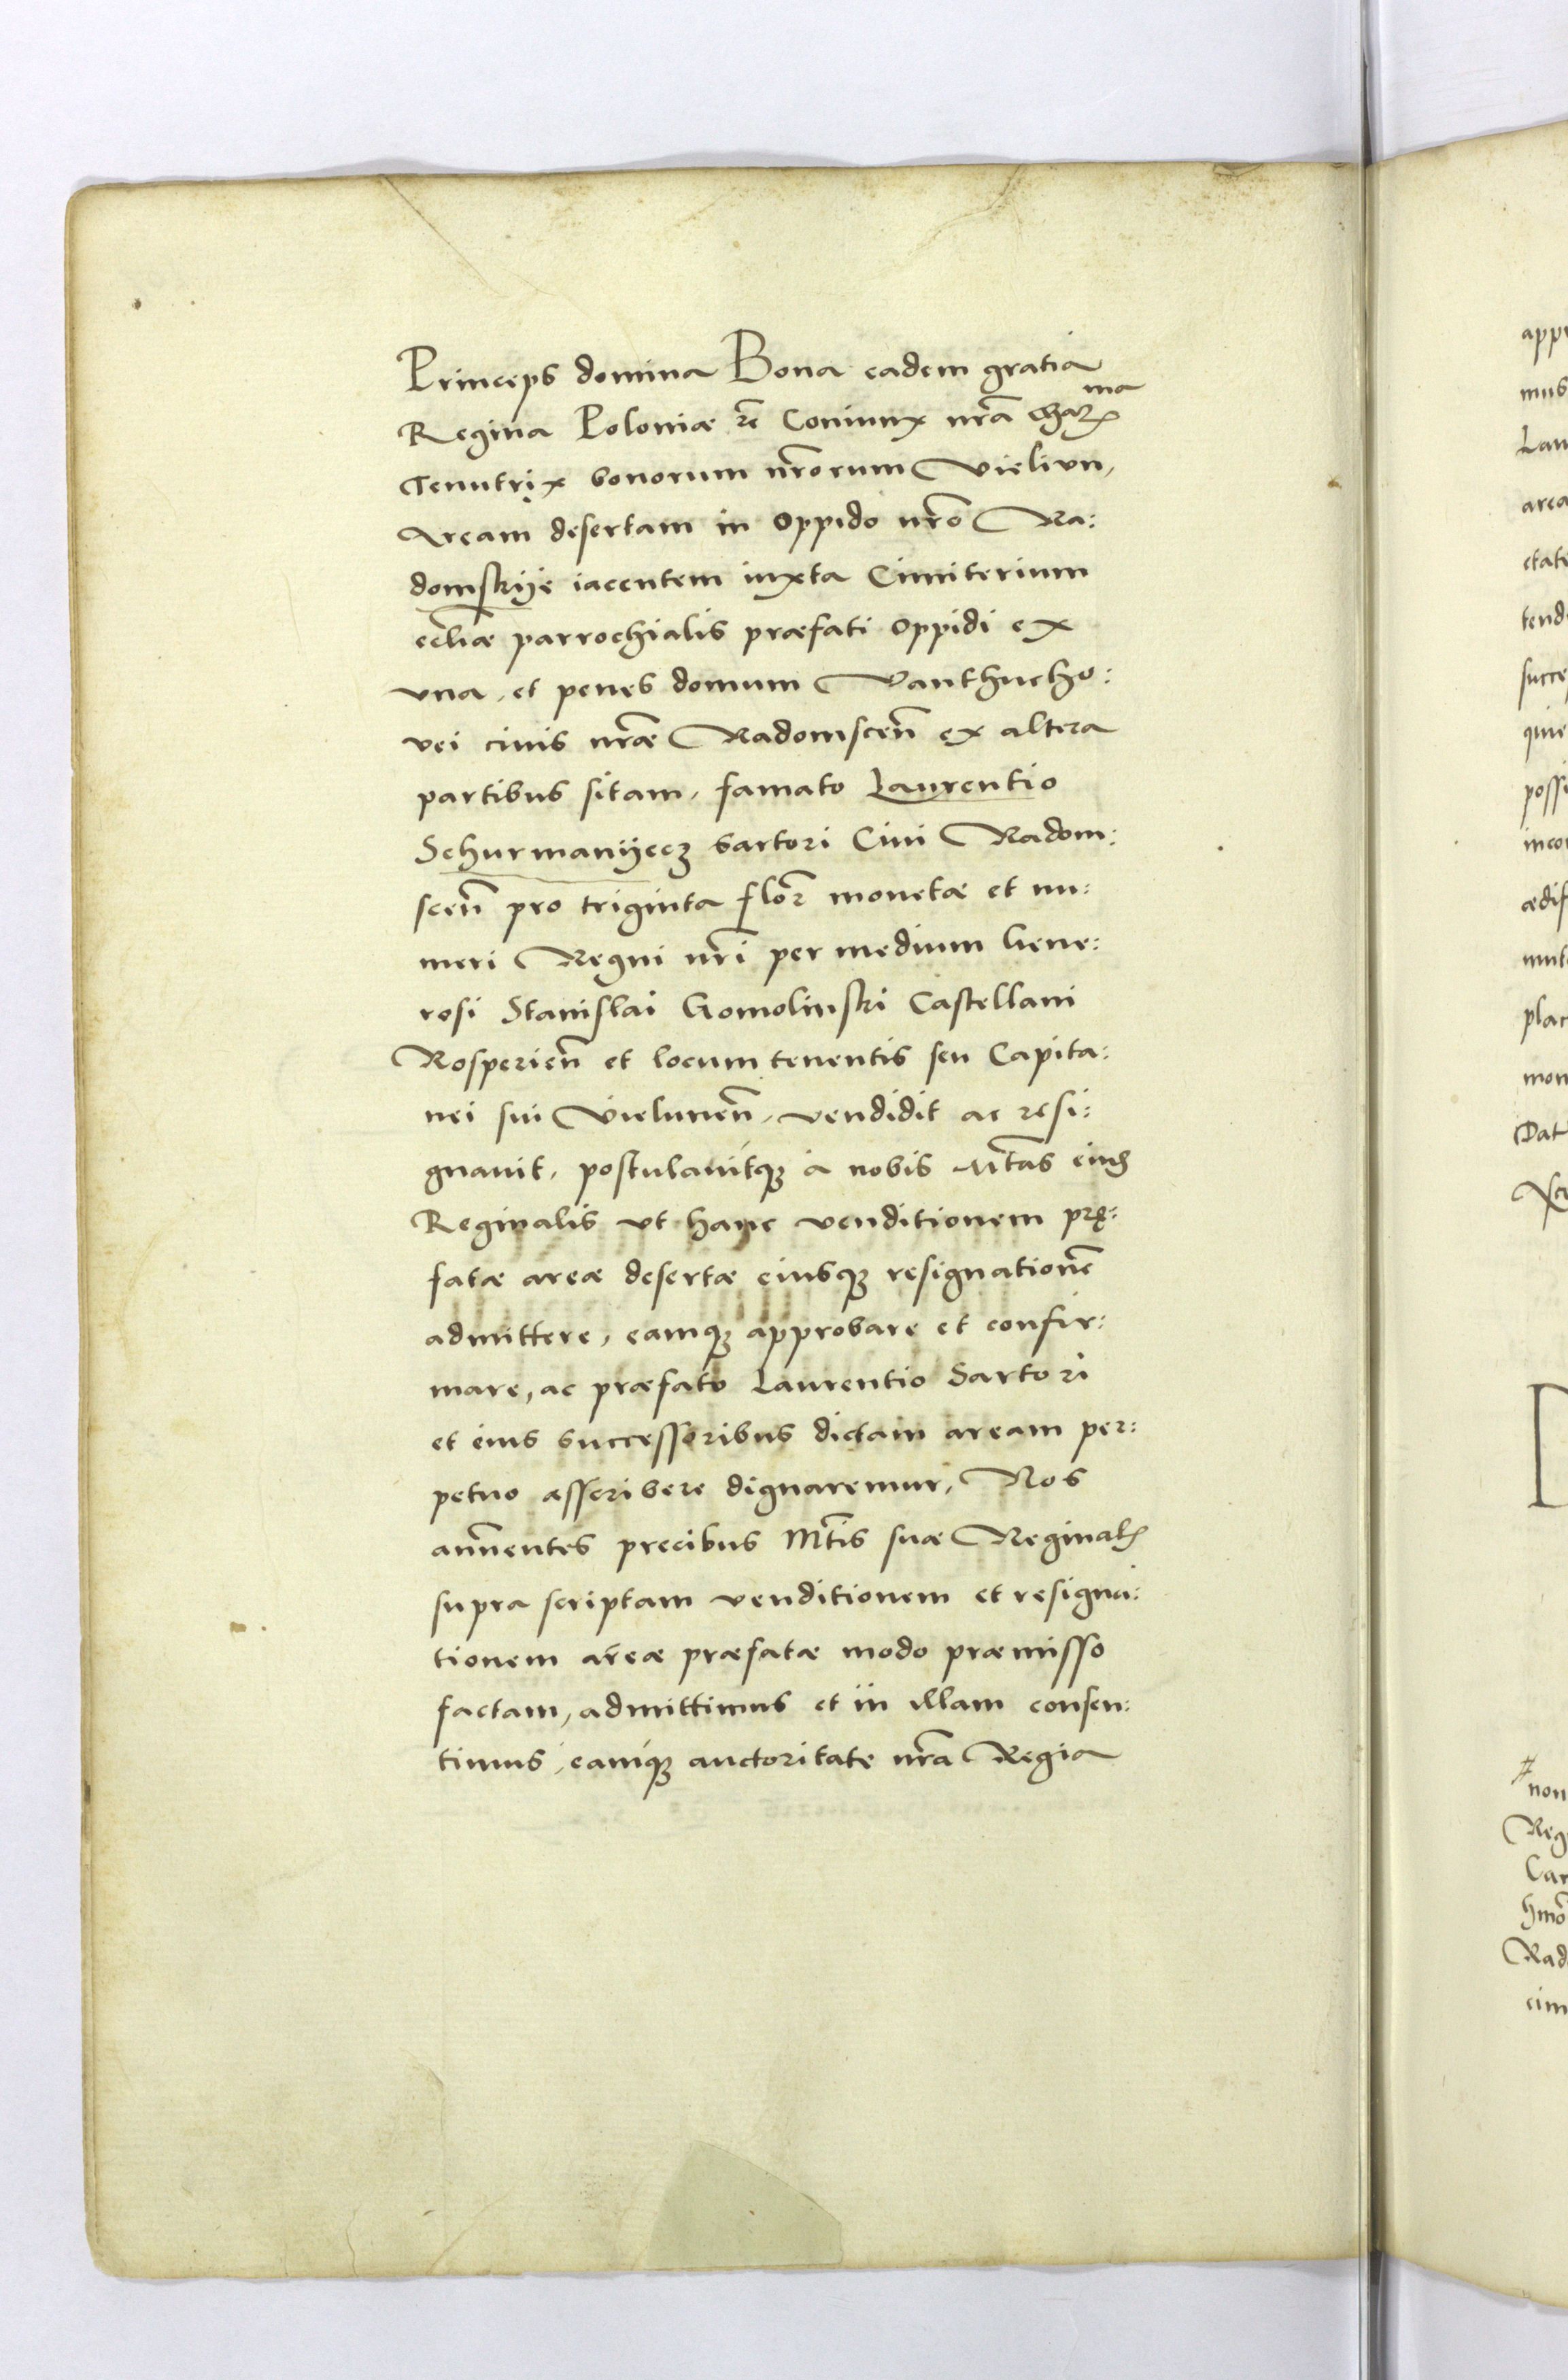 Princeps domina Bona eadem gratia
Regina Poloniæ rē Coniunx nrā chaz̃ ma
Tenutrix bonorum nrōrum Vielivn,
Aream desertam in oppido nrō Ra:
domskije iacentem iuxta Cimiterium
eccliæ parrochialis præfati oppidi ex
vna, et penes domum Vanthucho:
vei ciuis nræ̃ Radomsceñ ex altera
partibus sitam, famato Laurentio
Schurmanijecz sartori Ciui Radom:
sceñ pro triginta flor̃ monetæ et nu:
meri Regni nrĩ per medium Gene:
rosi Stanislai Gomolinski Castellani
Rosperieñ et locum tenentis seu Capita:
nei sui Vieluneñ, vendidit ac resi:
gnauit, postulauitq3 a nobis Mtãs eius
Reginalis vt hanc venditionem prę:
fatæ areæ desertæ eiusq3 resignationẽ
admittere, eamq3 approbare et confir:
mare, ac præfato Laurentio Sartori
et eius successoribus dictam aream per:
petuo asscribere dignaremur, Nos
annuentes precibus Mtĩs suæ Reginal̃
supra scriptam venditionem et resigna:
tionem areæ præfatæ modo præmisso
factam, admittimus et in illam consen:
timus, eamq3 auctoritate nrã Regia